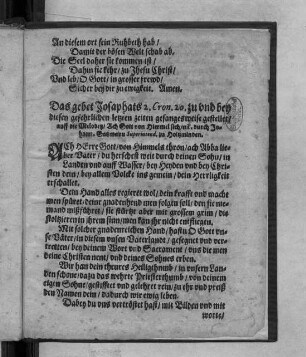 An diesem ort sein Ruhbeth hab/
Damit der bösen Welt schab ab.
Die Seel daher sie kommen ist/
Dahin sie kehr/ zu Jhesu Christ/
Vnd leb/ O Gott/ in grosser frewd/
Sicher bey dir zu ewigkeit. Amen.
Das gebet Josaphats 2. Cron. 20. zu vnd bey
diesen gefehrlichen letzten zeiten gesangsweise gestellet/
auff die Melodey/ Ach Gott von Himmel sich, etc. durch
Superintend. zu Holtzminden.
ACH HErre Gott/ von Himmels thron/ ach Abba lie-
ber Vater/ du herschest mit durch deinen Sohn/ im
Landen vnd auff Wasser/ bey Heyden vnd bey Chri-
sten dein/ bey allem Volcke ins gemein/ dein Herrligkeit
erschallet.
Dein Hand alles regieret wol/ dein krafft vnd macht
man spüret/ deine gnadenhand man folgen soll/ den sie
niemand mißführet/ sie stürtzt aber mit grossem grim/ die
stoltzieren in ihrem sinn/ man kan ihr nicht entfliegen.
Mit solcher gnadenreichen Hand/ hastu O Gott vn-
ser Väter/ in diesem vnsern Vaterlandt/ gesegnet vnd ver-
tretten/ bey deinem Wort vnd Sacrament/ vns die man
deine Christen nent/ vnd deines Sohnes erben.
Wir han dein theures Heiligthumb/ in vnsern Lan-
den schone/ dazu das wahre Priesterthumb/ von deinem
eigen Sohne/ gestifftet vnd gelehret rein/ zu ehr vnd preiß
den Namen dein/ dadurch wir ewig leben.
Dabey du vns vertröstet hast/ mit Bilden vnd mit
worte/